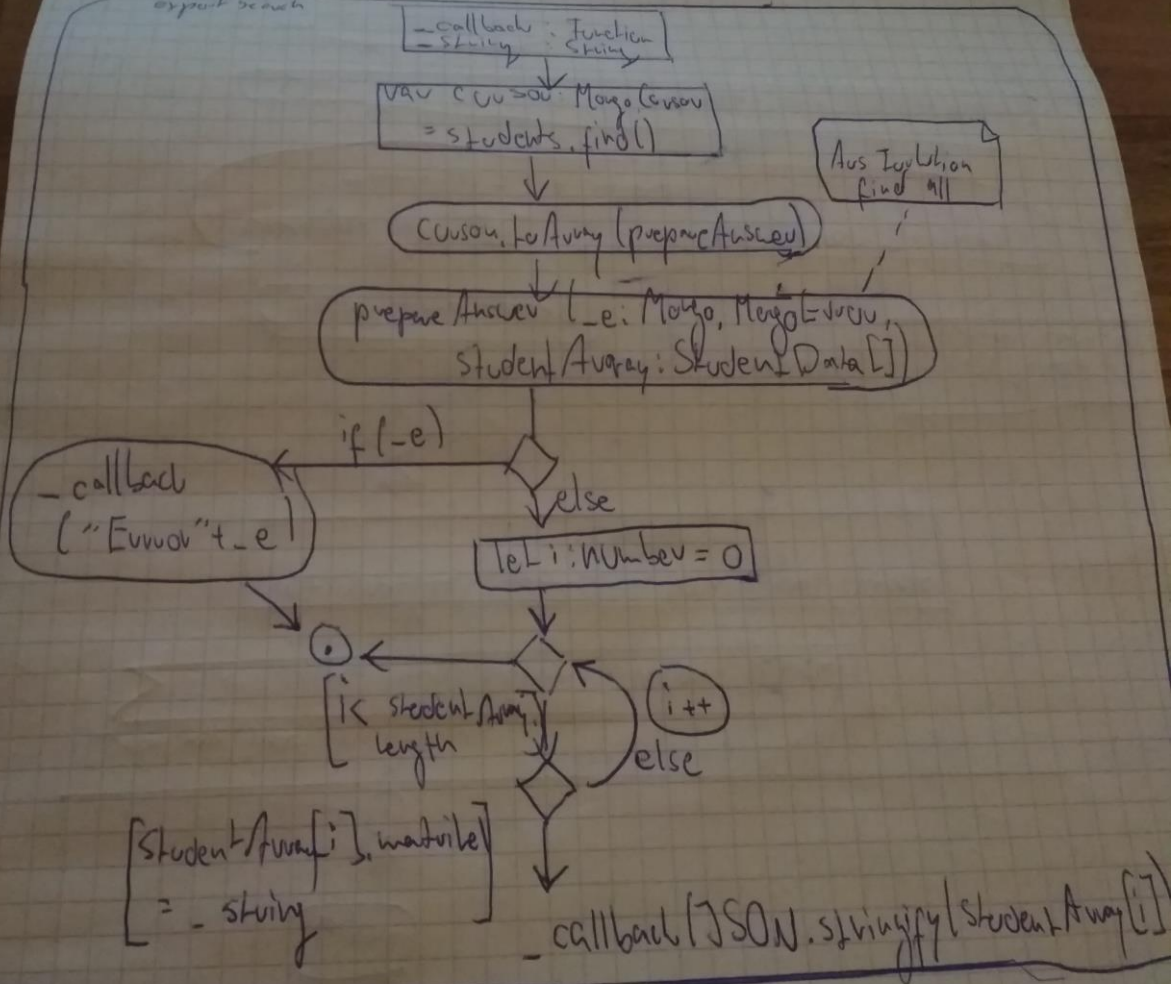 export search
_callback : Function
_string : String
var cursor: Mongo Cursor
= students.find()
Aus
find all
cursor.toArray (prepareAnswer)
prepare Answer (_e: Mongo, MongoError,
studentArray: StudentData[])
if (_e)
_callback
("Error"+_e)
else
let i:number = 0
[i< studentArray.
length
i++
else
[studentArray[i].matrikel]
= _string
_callback(JSON.stringify(studentArray[i])